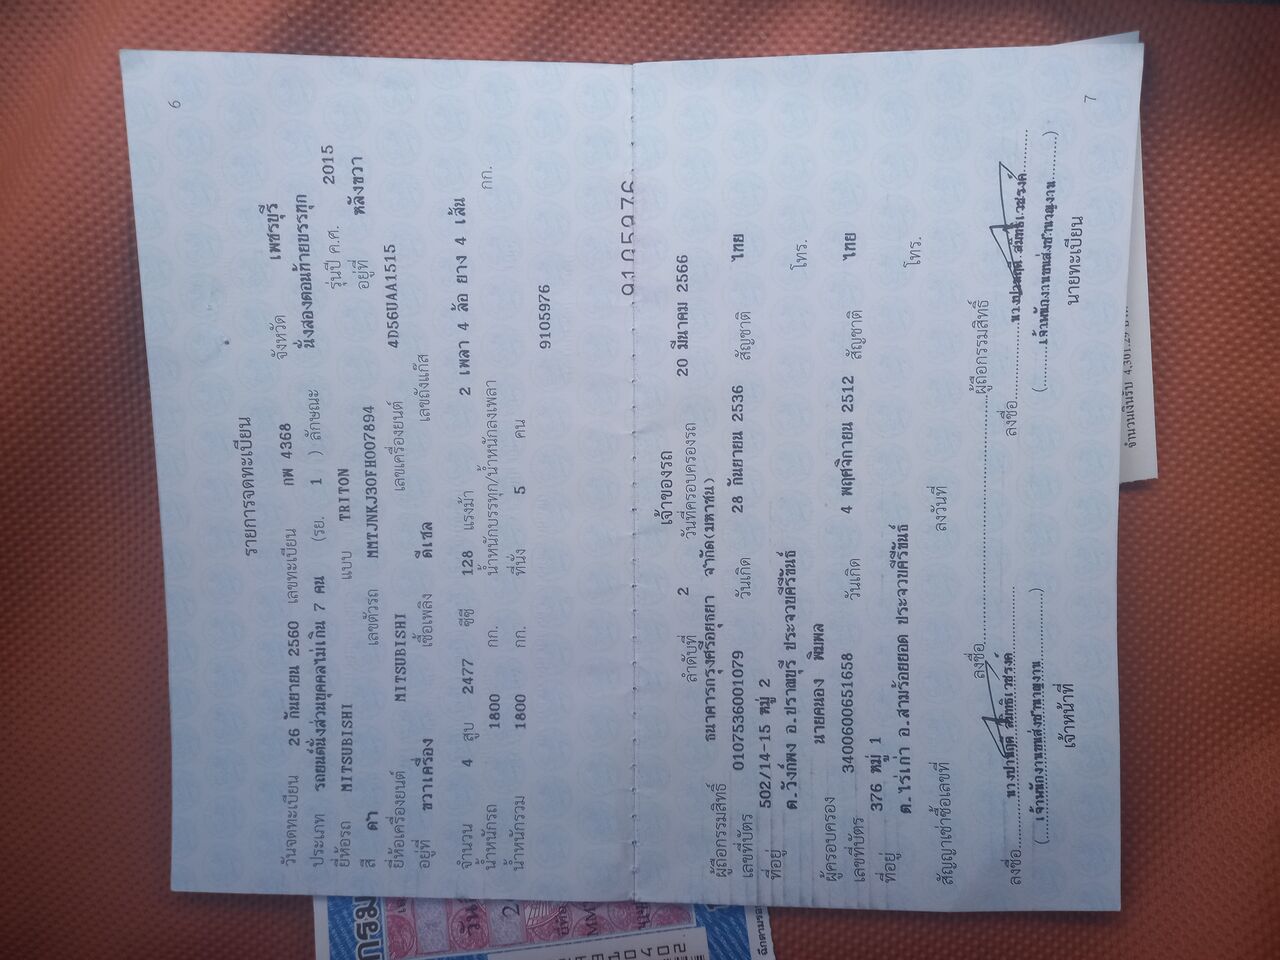 6
รายการจดทะเบียน
วันจดทะเบียน 26 กันยายน 2560 เลขทะเบียน กพ 4368 จังหวัด เพชรบุรี
ประเภท รถยนต์นั่งส่วนบุคคลไม่เกิน 7 คน (รย. 1 ) ลักษณะ นั่งสองตอนท้ายบรรทุก
ยี่ห้อรถ MITSUBISHI แบบ TRITON รุ่นปี ค.ศ. 2015
สี ดำ เลขตัวรถ MMTJNKJ30FH007894 อยู่ที่ หลังขวา
ยี่ห้อเครื่องยนต์ MITSUBISHI เลขเครื่องยนต์ 4D56UAA1515
อยู่ที่ ขวาเครื่อง เชื้อเพลิง ดีเซล เลขถังแก๊ส
จำนวน 4 สูบ 2477 ซีซี 128 แรงม้า 2 เพลา 4 ล้อ ยาง 4 เส้น
น้ำหนักรถ 1800 กก. น้ำหนักบรรทุก/น้ำหนักลงเพลา กก.
น้ำหนักรวม 1800 กก. ที่นั่ง 5 คน
9105976
9105976
เจ้าของรถ
ลำดับที่ 2 วันที่ครอบครองรถ 20 มีนาคม 2566
ผู้ถือกรรมสิทธิ์ ธนาคารกรุงศรีอยุธยา จำกัด(มหาชน)
เลขที่บัตร 0107536001079 วันเกิด 28 กันยายน 2536 สัญชาติ ไทย
ที่อยู่ 502/14-15 หมู่ 2
ต.วังก์พง อ.ปราณบุรี ประจวบคีรีขันธ์ โทร.
ผู้ครอบครอง นายคนอง พิมพล
เลขที่บัตร 3400600651658 วันเกิด 4 พฤศจิกายน 2512 สัญชาติ ไทย
ที่อยู่ 376 หมู่ 1
ต.ไร่เก่า อ.สามร้อยยอด ประจวบคีรีขันธ์ โทร.
สัญญาเช่าซื้อเลขที่ ลงวันที่
ลงชื่อ ผู้ถือกรรมสิทธิ์
ลงชื่อ ลงชื่อ
(เจ้าพนักงานขนส่งชำนาญงาน) (เจ้าพนักงานขนส่งชำนาญงาน)
เจ้าหน้าที่ นายทะเบียน
7
จำนวนเงินรับ 4,301.29 บาท
กรม